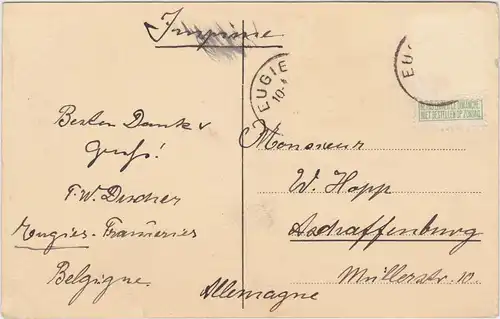 Imprimé
EUGIE
10
EUG
NE PAS LIVRER LE DIMANCHE
NIET BESTELLEN OP ZONDAG
Besten Dank u
Gruß!
F. W. Discher
Eugies-Frameries
Belgique.
Monsieur
W. Hopp
Aschaffenburg
Müllerstr. 10.
Allemagne